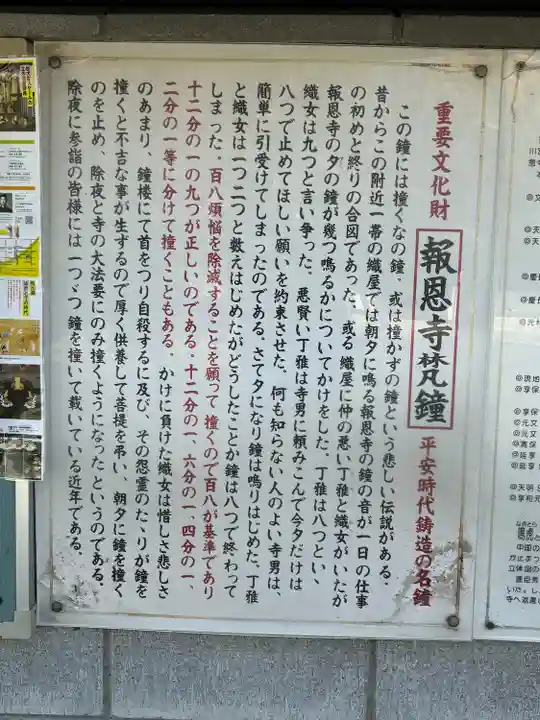 重要文化財 報恩寺梵鐘 平安時代鋳造の名鐘
この鐘には撞くなの鐘、或は撞かずの鐘という悲しい伝説がある.
昔からこの附近一帯の織屋では朝夕に鳴る報恩寺の鐘の音が一日の仕事
の初めと終りの合図であった、或る織屋に仲の悪い丁稚と織女がいたが
報恩寺の夕の鐘が幾つ鳴るかについてかけをした、丁稚は八つといい、
織女は九つと言い争った、悪賢い丁稚は寺男に頼みこんで今夕だけは
八つで止めてほしい願いを約束させた、何も知らない人のよい寺男は、
簡単に引受けてしまったのである。さて夕になり鐘は鳴りはじめた、丁稚
と織女は一つ二つと数えはじめたがどうしたことか鐘は八つで終わって
しまった.百八煩悩を除滅することを願って撞くので百八が基準であり
十二分の一の九つが正しいのである.十二分の一、六分の一、四分の一、
二分の一等に分けて撞くこともある. かけに負けた織女は惜しさ悲しさ
のあまり、鐘楼にて首をつり自殺するに及び、その怨霊のたゝりが鐘を
撞くと不吉な事が生ずるので厚く供養して菩提を弔い、朝夕に鐘を撞く
のを止め、除夜と寺の大法要にのみ撞くようになったというのである.
除夜に参詣の皆様には一つゞつ鐘を撞いて戴いている近年である.
◎天明
◎享和元